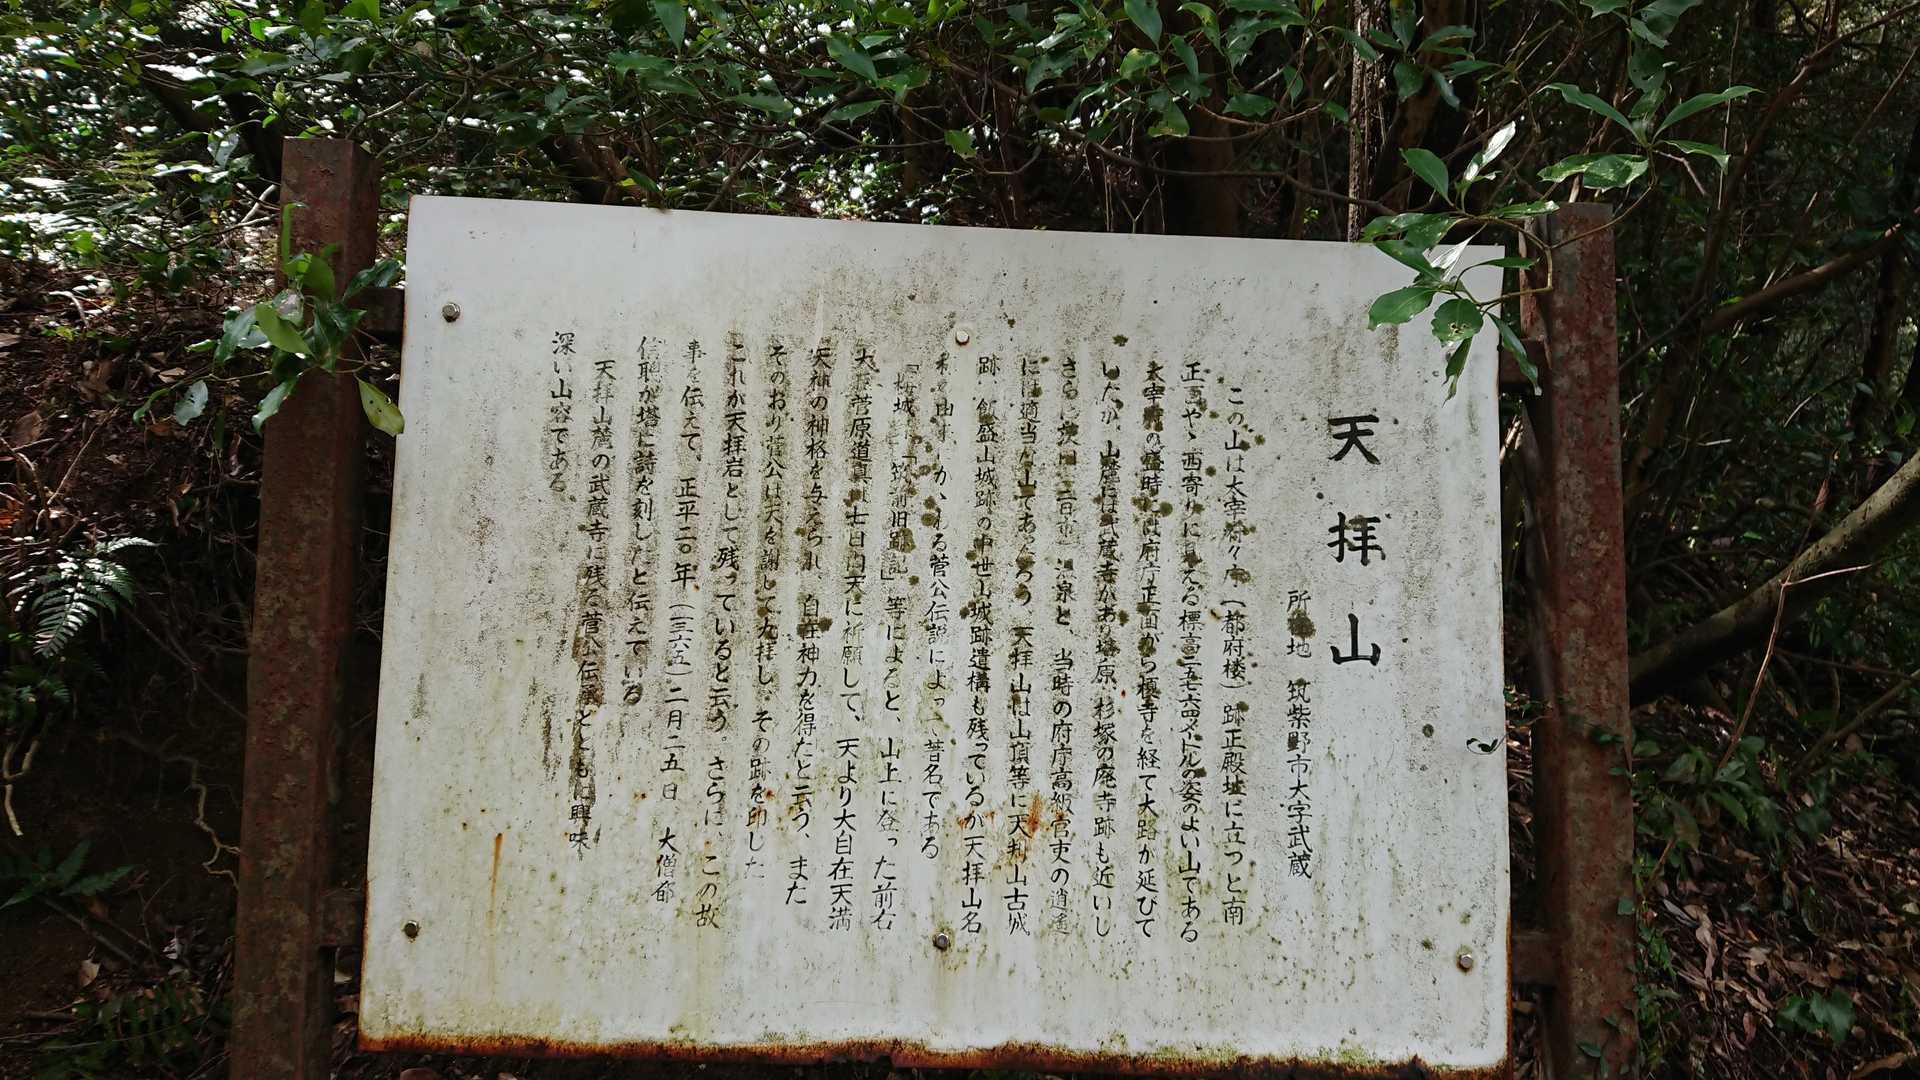 天拝山
所在地 筑紫野市大字武蔵
この山は大宰府々庁(都府楼)跡正殿址に立つと南
正面やゝ西寄りに見える標高二五七・六四メートルの姿のよい山である
大宰府の盛時には府庁正面から榎寺を経て大路が延びて
いたが、山麓には武蔵寺があり塔原、杉塚の廃寺跡も近いし
さらに次田(二日市)温泉と、当時の府庁高級官吏の逍遥
には適当な山であったろう 天拝山は山頂等に天判山古城
跡、飯盛山城跡の中世山城跡遺構も残っているが天拝山名
称の由来 かゝわる菅公伝説によって著名である
城 「筑前旧跡記」等によると、山上に登った前右
大臣菅原道真は七日間天に祈願して、天より大自在天満
天神の神格を与えられ、自在神力を得たと云う、また
そのおり菅公は天を謝して九拝し、その跡を印した
これが天拝岩として残っていると云う。さらに、この故
事を伝えて、正平二〇年(一三六五)二月二五日 大僧都
信聡が塔に詩を刻したと伝えている
天拝山麓の武蔵寺に残る菅公伝承とともに興味
深い山容である。